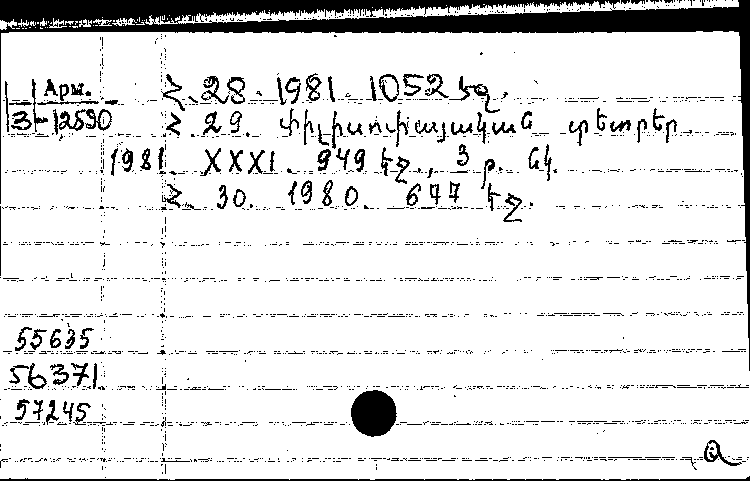 Арм.
3-12590
Հ. 28. 1981. 1052 էջ.
Հ. 29. Փիլիսոփայական տետրեր.
1981. XXXI. 949 էջ., 3 թ. նկ.
Հ. 30. 1980. 677 էջ.
55635
56371
57245